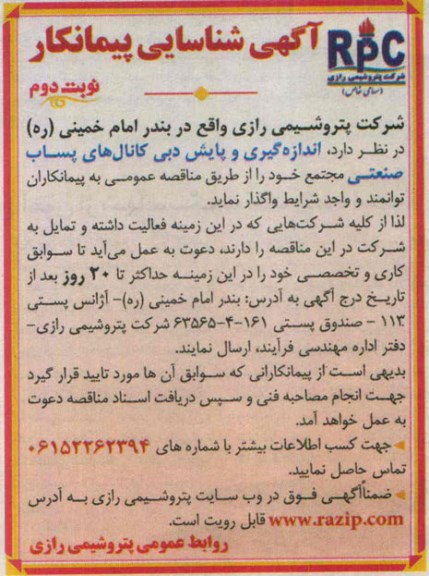 RPC
شرکت پتروشیمی رازی
(سهامی خاص)
آگهی شناسایی پیمانکار
نوبت دوم
شرکت پتروشیمی رازی واقع در بندر امام خمینی (ره)
در نظر دارد، اندازه‌گیری و پایش دبی کانال‌های پساب
صنعتی مجتمع خود را از طریق مناقصه عمومی به پیمانکاران
توانمند و واجد شرایط واگذار نماید.
لذا از کلیه شرکت‌هایی که در این زمینه فعالیت داشته و تمایل به
شرکت در این مناقصه را دارند، دعوت به عمل می‌آید تا سوابق
کاری و تخصصی خود را در این زمینه حداکثر تا ۲۰ روز بعد از
تاریخ درج آگهی به آدرس: بندر امام خمینی (ره)- آژانس پستی
۱۱۳ - صندوق پستی ۱۶۱-۴-۶۳۵۶۵ شرکت پتروشیمی رازی-
دفتر اداره مهندسی فرآیند، ارسال نمایند.
بدیهی است از پیمانکارانی که سوابق آن ها مورد تایید قرار گیرد
جهت انجام مصاحبه فنی و سپس دریافت اسناد مناقصه دعوت
به عمل خواهد آمد.
جهت کسب اطلاعات بیشتر با شماره های ۰۶۱۵۲۲۶۲۳۹۴
تماس حاصل نمایید.
ضمناً آگهی فوق در وب سایت پتروشیمی رازی به آدرس
www.razip.com قابل رویت است.
روابط عمومی پتروشیمی رازی